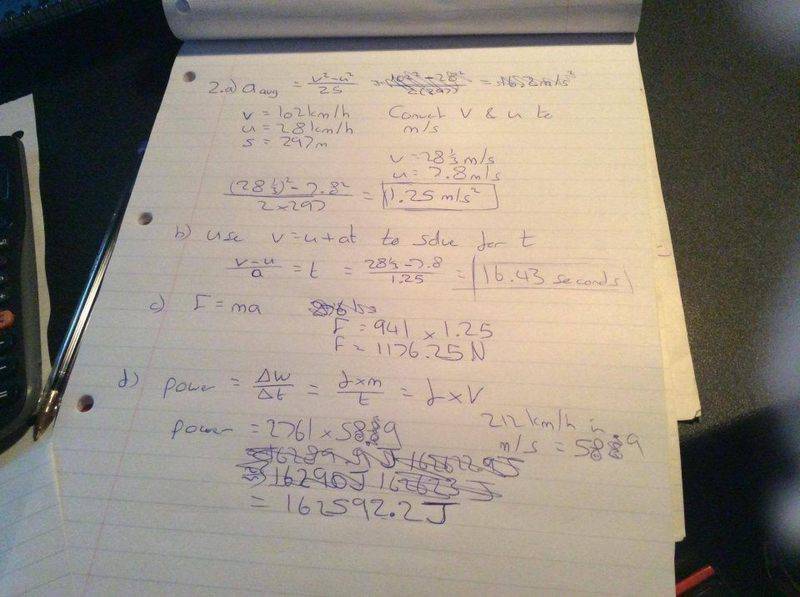 2.a) a avg = v²-u² / 2s
v = 102 km/h Convert V & u to
u = 28 km/h m/s
s = 297m
v = 28 1/3 m/s
u = 7.8 m/s
(28 1/3)² - 7.8² / 2 x 297 = 1.25 m/s²
b) use v = u + at to solve for t
v-u / a = t = 28 1/3 - 7.8 / 1.25 = 16.43 seconds
c) F = ma
F = 941 x 1.25
F = 1176.25 N
d) power = ΔW / Δt = f x m / t = f x V
212 km/h in
power = 2761 x 58.89 m/s = 58.89
= 162592.2 J